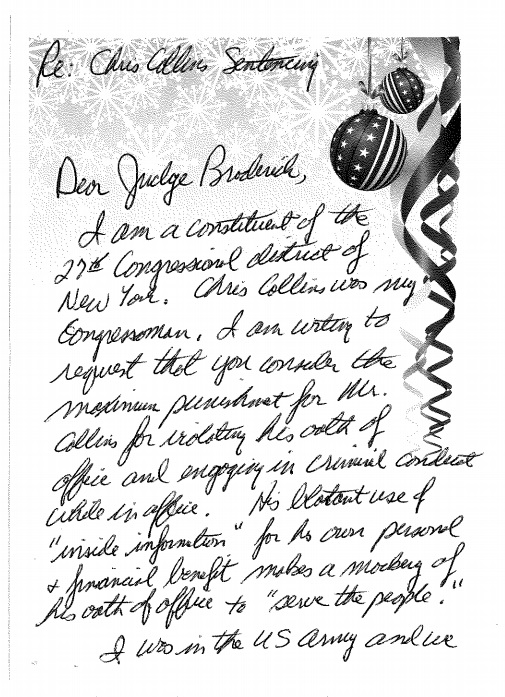 Re: Chris Collins Sentencing
Dear Judge Broderick,
I am a constituent of the
27th Congressional district of
New York. Chris Collins was my
Congressman. I am writing to
request that you consider the
maximum punishment for Mr.
Collins for violating his oath of
office and engaging in criminal conduct
while in office. His blatant use of
"inside information" for his own personal
& financial benefit makes a mockery of
his oath of office to "serve the people."
I was in the US Army and we